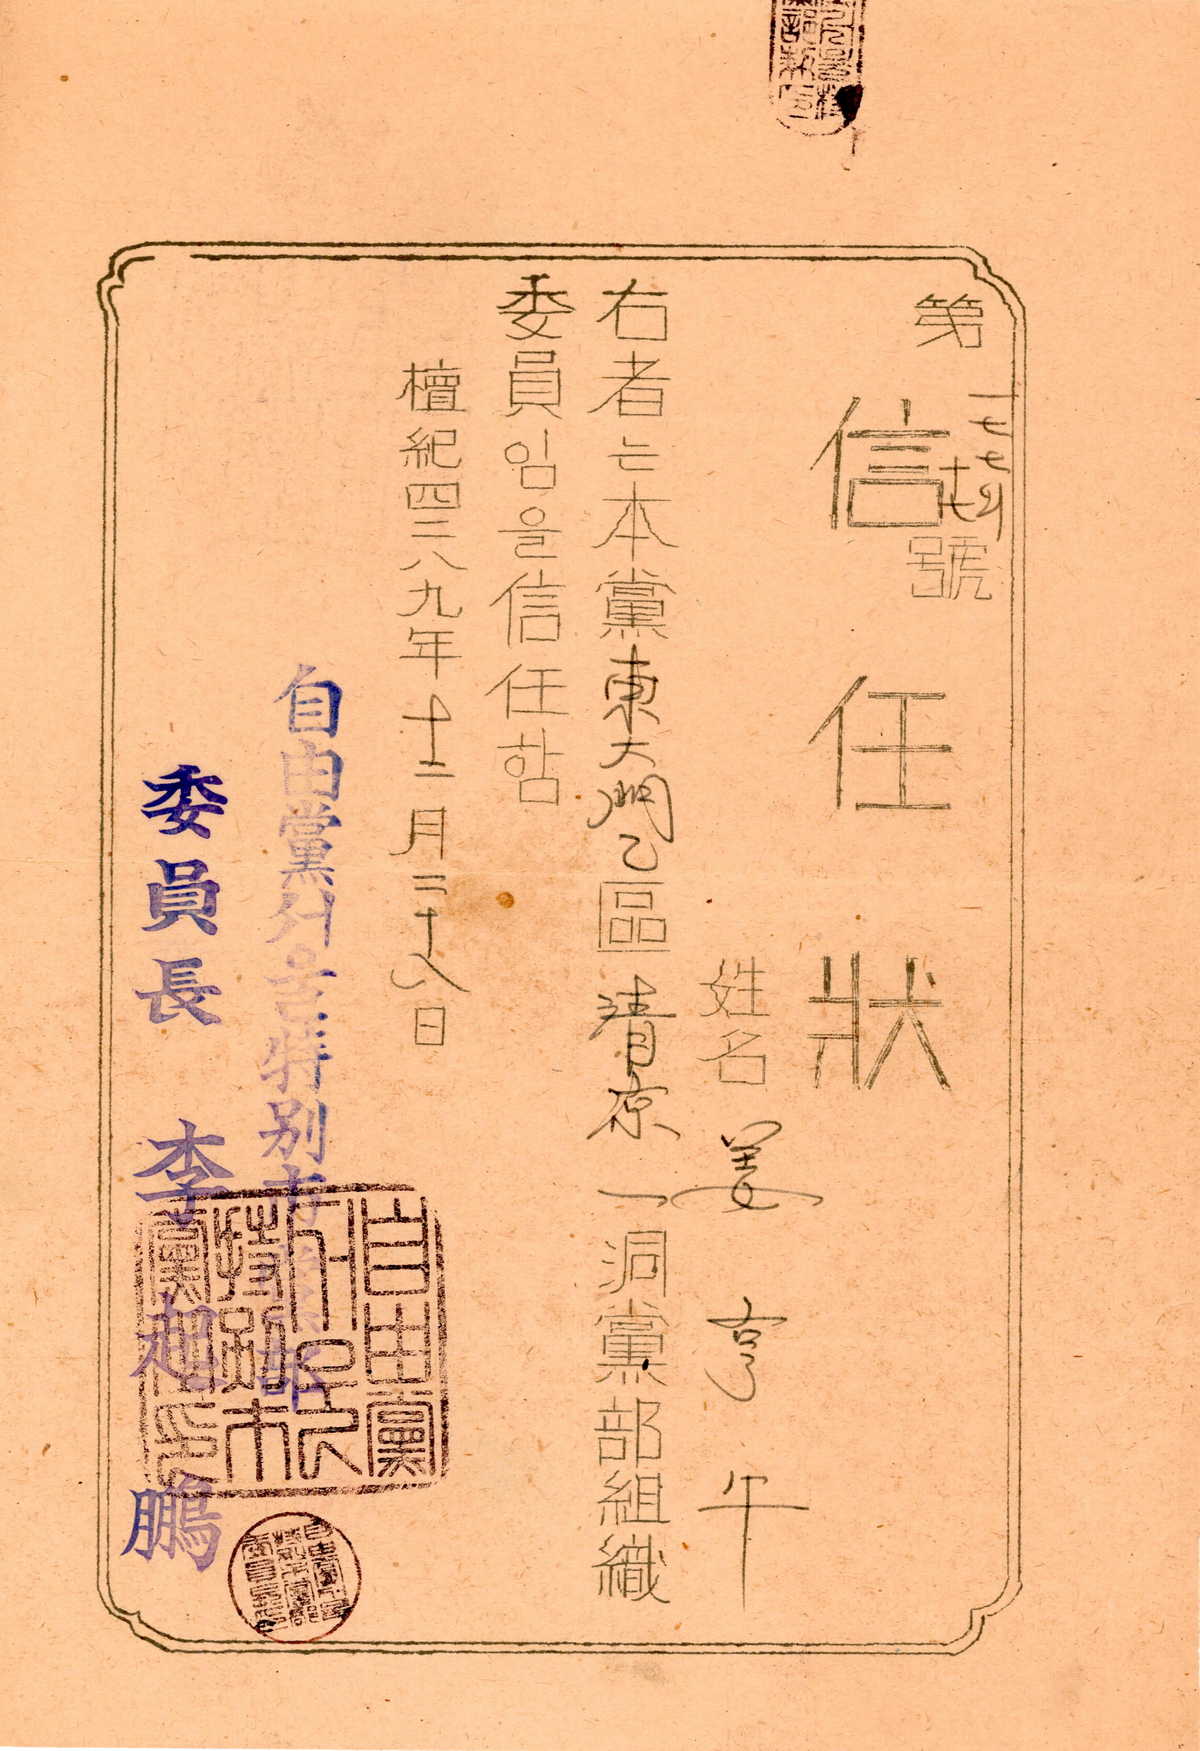 第 號
信任狀
姓名 姜亨午
右者는本黨東大門乙區淸凉一洞黨部組織
委員임을信任함
檀紀四二八九年十二月二十八日
自由黨서울特別市黨部
委員長 李起鵬